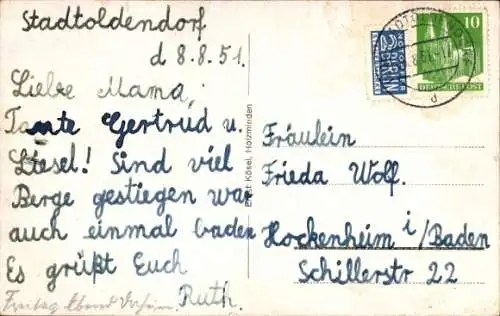 Stadtoldendorf
d 8.8.51.
Liebe Mama,
Tante Gertrud u.
Liesel! Sind viel
Berge gestiegen war
auch einmal baden
Es grüßt Euch
Ruth.
Freitag Abend
Ernst Kösel, Holzminden
NOTOPFER
2 BERLIN
STEUERMARKE
10
DEUTSCHE POST
d
Fräulein
Frieda Wolf.
Hockenheim i/Baden
Schillerstr 22